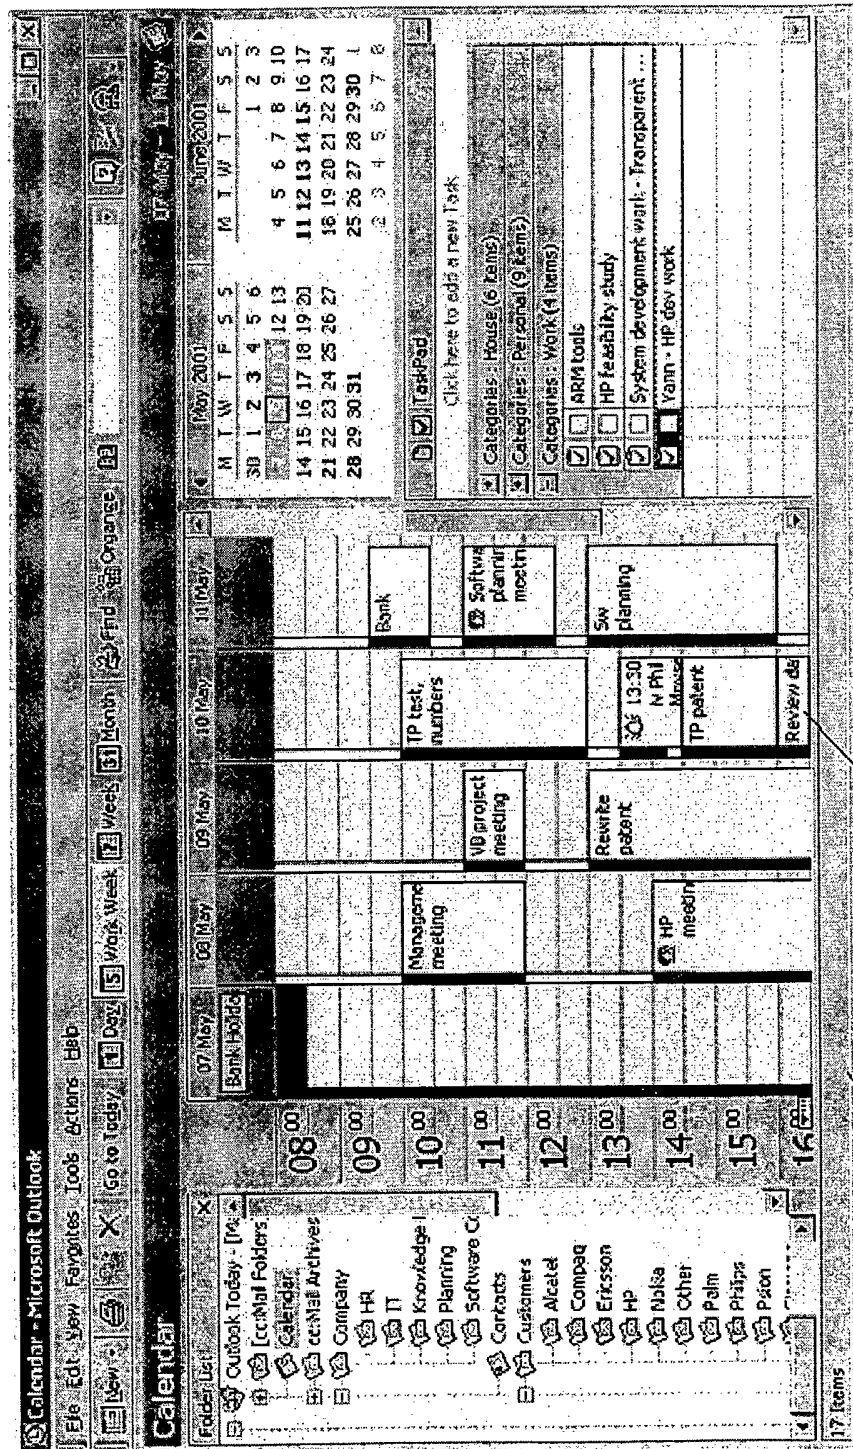 Calendar - Microsoft Outlook
File Edit View Favorites Tools Actions Help
New Go to Today 1 Day 5 Work Week 7 Week 31 Month Find Organize
Calendar
07 May - 11 May
Folder List
Outlook Today - [
[cc:Mail Folders
Calendar
cc:Mail Archives
Company
HR
IT
Knowledge
Planning
Software
Contacts
Customers
Alcatel
Compaq
Ericsson
HP
Nokia
Other
Palm
Philips
Psion
17 Items
07 May 08 May 09 May 10 May 11 May
Bank Holida
08 00
09 00
10 00
11 00
12 00
13 00
14 00
15 00
16 00
Manageme
meeting
HP
meetin
VB project
meeting
Rewrite
patent
TP test,
numbers
13:30
Phil
TP patent
Review da
Bank
Softwa
plannin
meetin
Sw
planning
May 2001
M T W T F S S
30 1 2 3 4 5 6
7 8 9 10 11 12 13
14 15 16 17 18 19 20
21 22 23 24 25 26 27
28 29 30 31
June 2001
M T W T F S S
1 2 3
4 5 6 7 8 9 10
11 12 13 14 15 16 17
18 19 20 21 22 23 24
25 26 27 28 29 30 1
2 3 4 5 6 7 8
TaskPad
Click here to add a new Task
Categories : House (6 items)
Categories : Personal (9 items)
Categories : Work (4 items)
ARM tools
HP feasibility study
System development work - Transparent ...
Yann - HP dev work